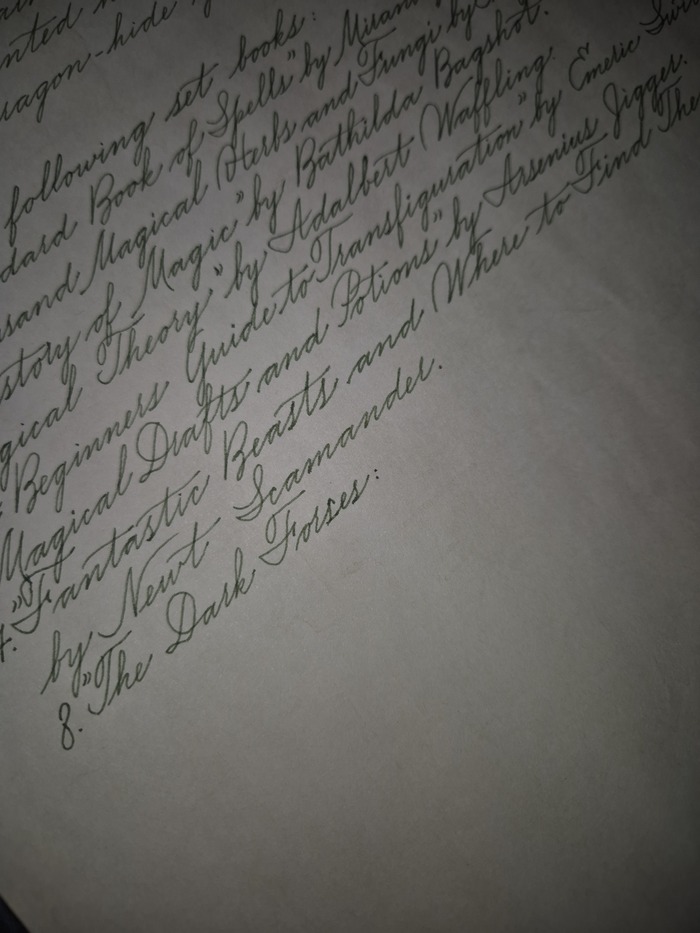 ragon-hide
following set books:
dard Book of Spells" by
sand Magical Herbs and Fungi by
story of Magic" by Bathilda Bagshot.
gical Theory" by Adalbert Waffling.
Beginners Guide to Transfiguration" by Emeric
Magical Drafts and Potions" by Arsenius Jigger.
"Fantastic Beasts and Where to Find The
by Newt Scamander.
8. "The Dark Forses: